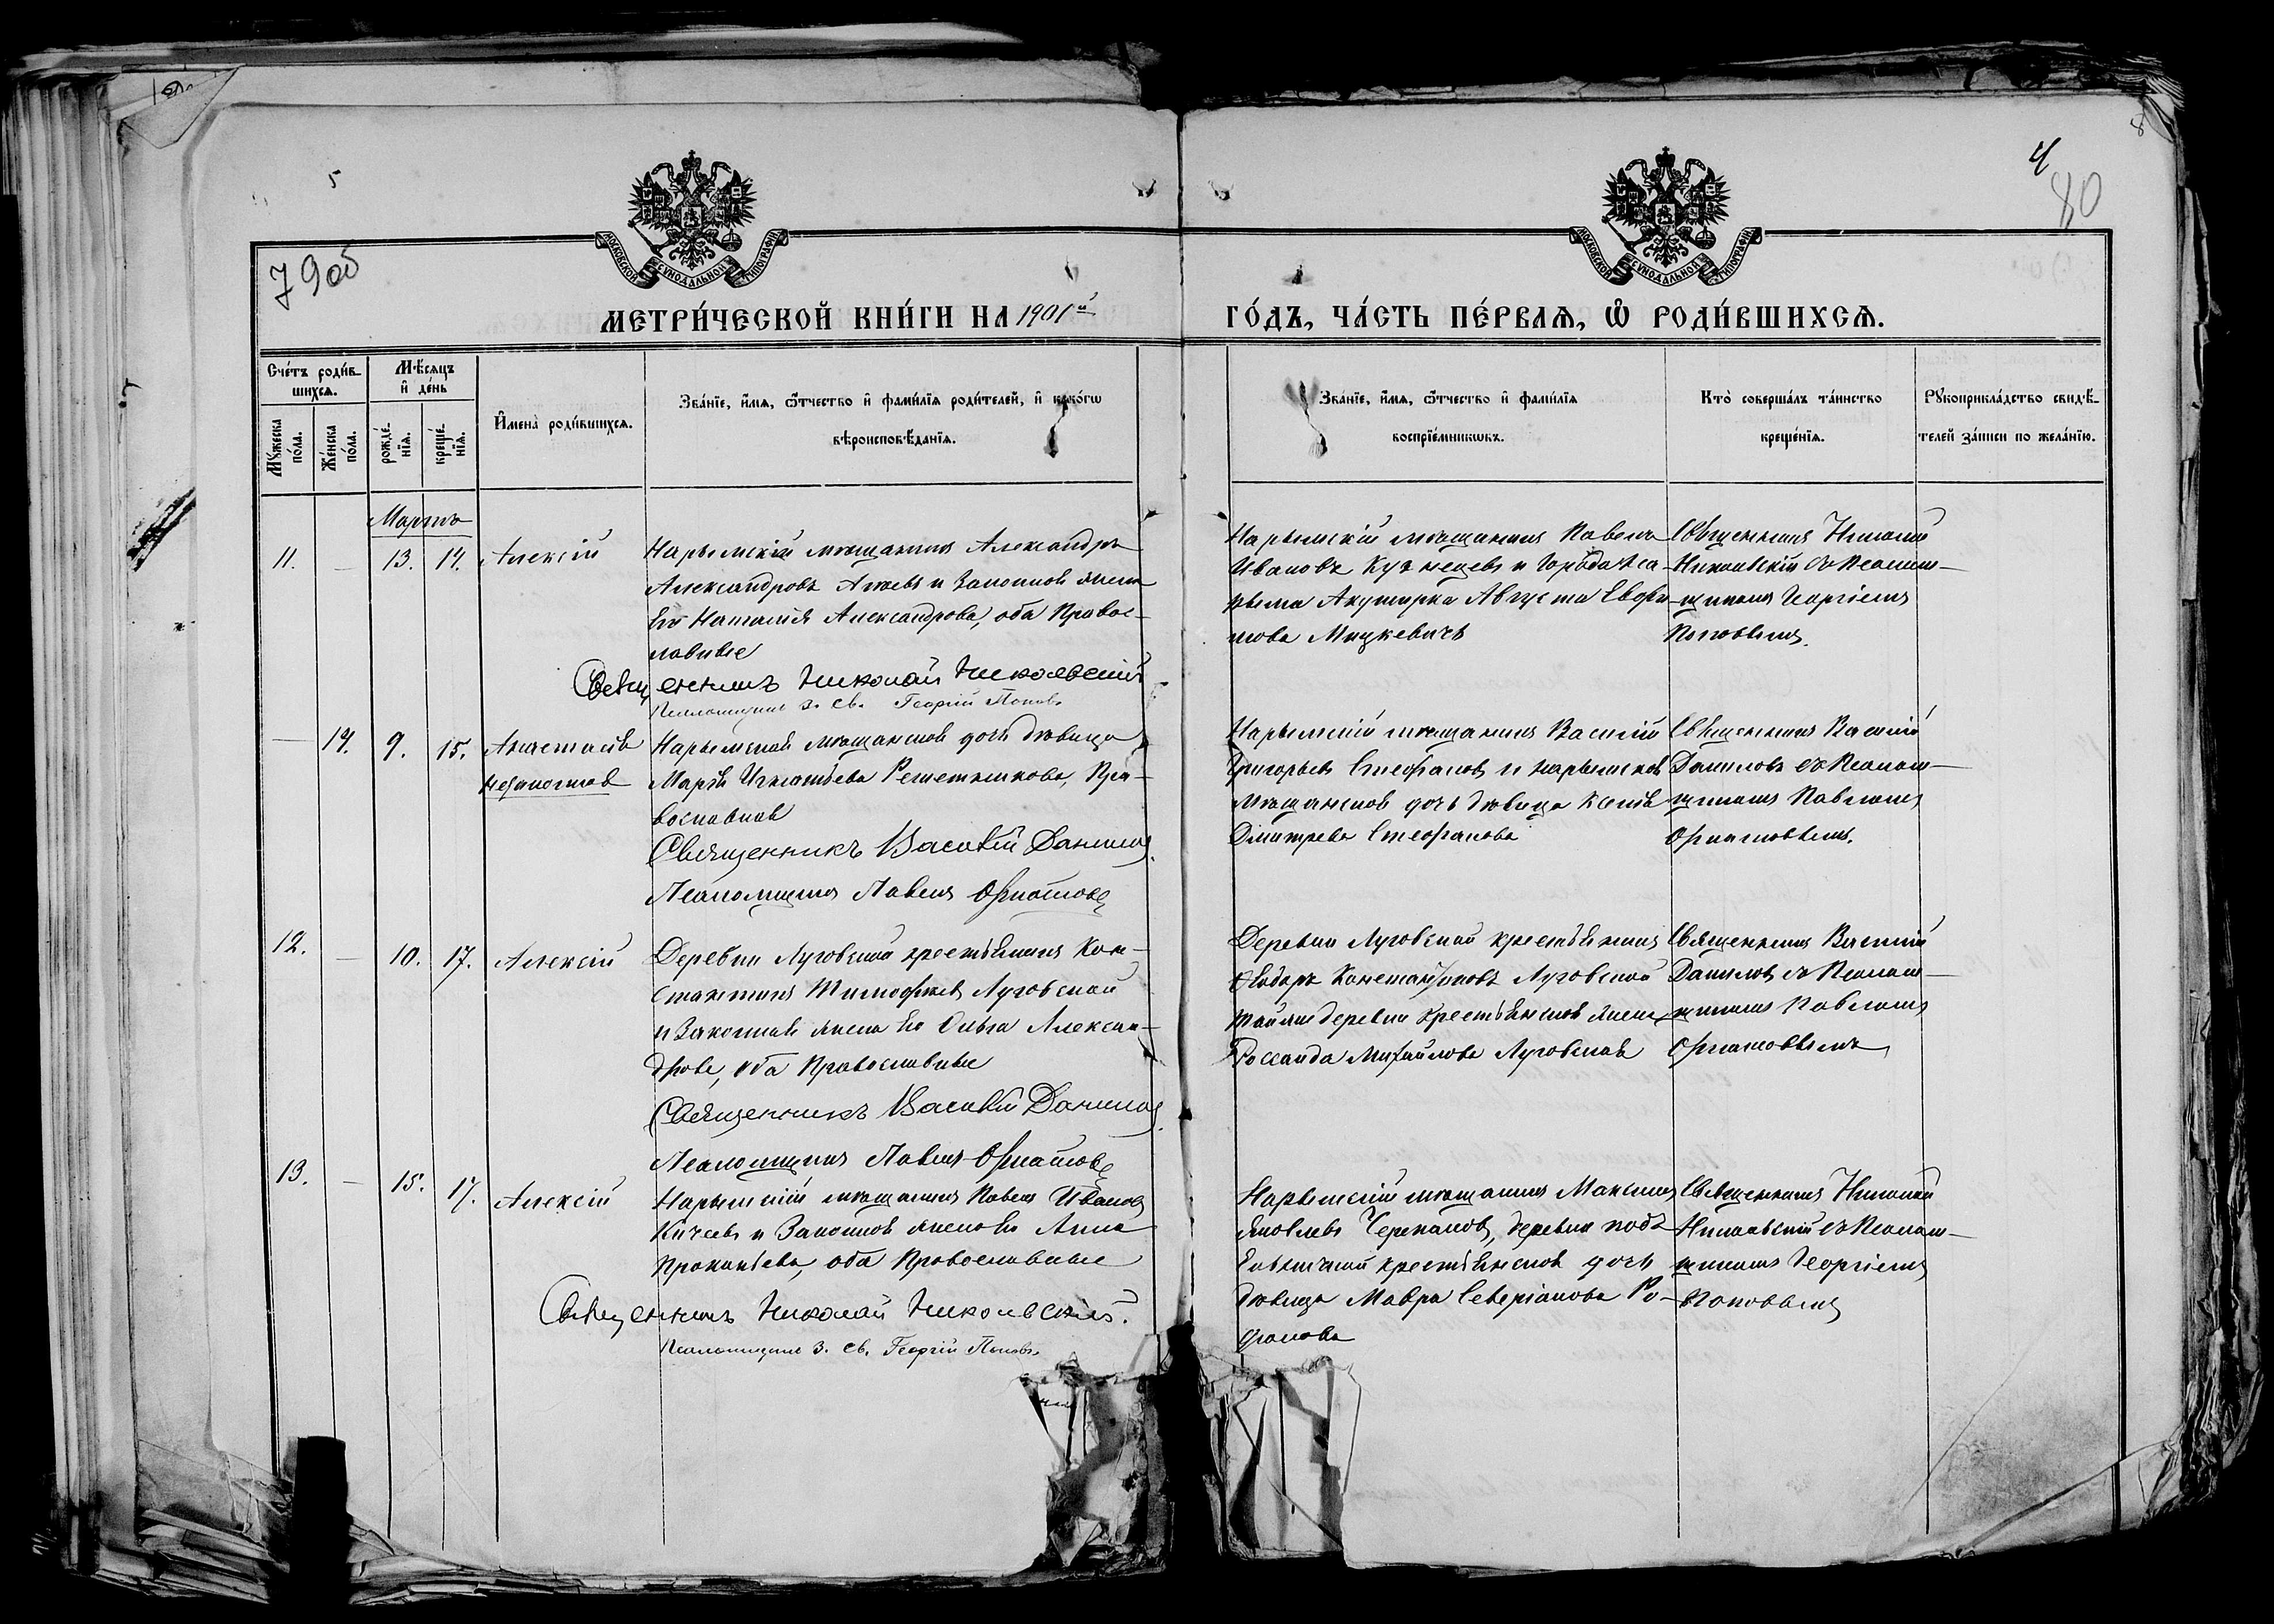 5
4
80
8
79об
МОСКОВСКОЙ СУНОДАЛЬНОЙ ТИПОГРАФІИ
МОСКОВСКОЙ СУНОДАЛЬНОЙ ТИПОГРАФІИ
МЕТРИ́ЧЕСКОЙ КНИ́ГИ НА 1901й
ГО́ДЪ, ЧА́СТЬ ПЕ́РВАѦ, Ѡ҆ РОДИ́ВШИХСѦ.
Сче́тъ роди́в-
шихсѧ.
Мѣ́сѧцъ
и҆ де́нь
Мꙋ́жеска по́ла.
Же́нска по́ла.
рожде́-нїѧ.
креще́-нїѧ.
И҆мена̀ роди́вшихсѧ.
Зва́нїе, и҆́мѧ, ѻ҆́тчество и҆ фами́лїѧ роди́телей, и҆ како́гѡ
вѣроисповѣ́данїѧ.
Зва́нїе, и҆́мѧ, ѻ҆́тчество и҆ фами́лїѧ
воспрїе́мникѡвъ.
Кто̀ соверша́лъ та́инство
креще́нїѧ.
Рꙋкоприкла́дство свидѣ́-
телей за́писи по жела́нїю.
Мартъ
11. — 13. 14. Алексій
Нарымскій мѣщанинъ Александръ
Александровъ и законная жена
Его Наталія Александрова, оба Правос-
лавные
Священникъ Николай Никольскій
Псаломщикъ З. Св. Георгій Поповъ
Нарымскій мѣщанинъ Павелъ
Ивановъ Кузнецовъ и города На-
рыма Акушерка Августа
Мицкевичъ
Священникъ Николай
Никольскій съ Псалом-
щикомъ Георгіемъ
Поповымъ.
— 14. 9. 15. Анастасія
незаконная
Нарымская мѣщанская дочь дѣвица
Марія Игнатьева Решетникова, Пра-
вославная
Священникъ Василій Даниловъ.
Псаломщикъ Павелъ Орнатовъ
Нарымскій мѣщанинъ Василій
Григорьевъ Стефановъ и нарымская
мѣщанская дочь дѣвица Ксенія
Димитрева Стефанова
Священникъ Василій
Даниловъ съ Псалом-
щикомъ Павломъ
Орнатовымъ.
12. — 10. 17. Алексій
Деревни Луговской крестьянинъ Кон-
стантинъ Тимофѣевъ Луговской
и законная жена Его Ольга Алексан-
дрова, оба Православные
Священникъ Василій Даниловъ.
Псаломщикъ Павелъ Орнатовъ
Деревни Луговской крестьянинъ
Ѳеодоръ Константиновъ Луговской
той же деревни крестьянская жена
Михайлова Луговская
Священникъ Василій
Даниловъ съ Псалом-
щикомъ Павломъ
Орнатовымъ
13. — 15. 17. Алексій
Нарымскій мѣщанинъ Павелъ Ивановъ
Кичеевъ и Законная жена его Анна
Прокопьева, оба Православные
Священникъ Николай Никольскій.
Псаломщикъ З. Св. Георгій Поповъ
Нарымскій мѣщанинъ Максимъ
Яковлевъ Черепановъ, деревни
крестьянская дочь
дѣвица Мавра Северіанова Ро-
дюкова
Священникъ Николай
Никольскій съ Псалом-
щикомъ Георгіемъ
Поповымъ